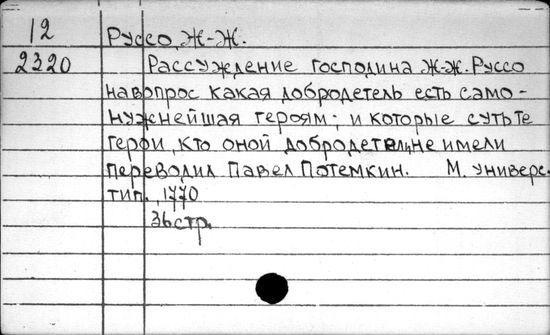 12 Руссо, Ж-Ж.
2320 Рассуждение господина Ж-Ж. Руссо
на вопрос какая добродетель есть само-
нужнейшая героям; и которые суть те
герои, кто оной добродетели, не имели
переводил Павел Потемкин. М. универс.
тип., 1770
36 стр.